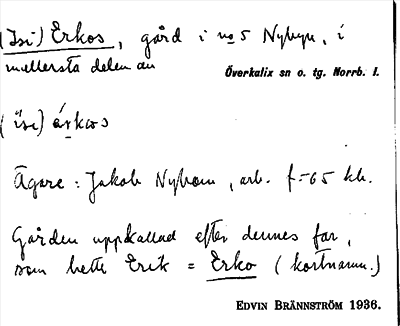 (Isi) Erkos, gård i no 5 Nybyn, i
mellersta delen av
Överkalix sn o. tg. Norrb. l.
(isi) árkos
Ägare: Jakob Nybom, arb. f=65 kb.
Gården uppkallad efter dennes far,
som hette Erik = Erko (kortnamn.)
EDVIN BRÄNNSTRÖM 1936.